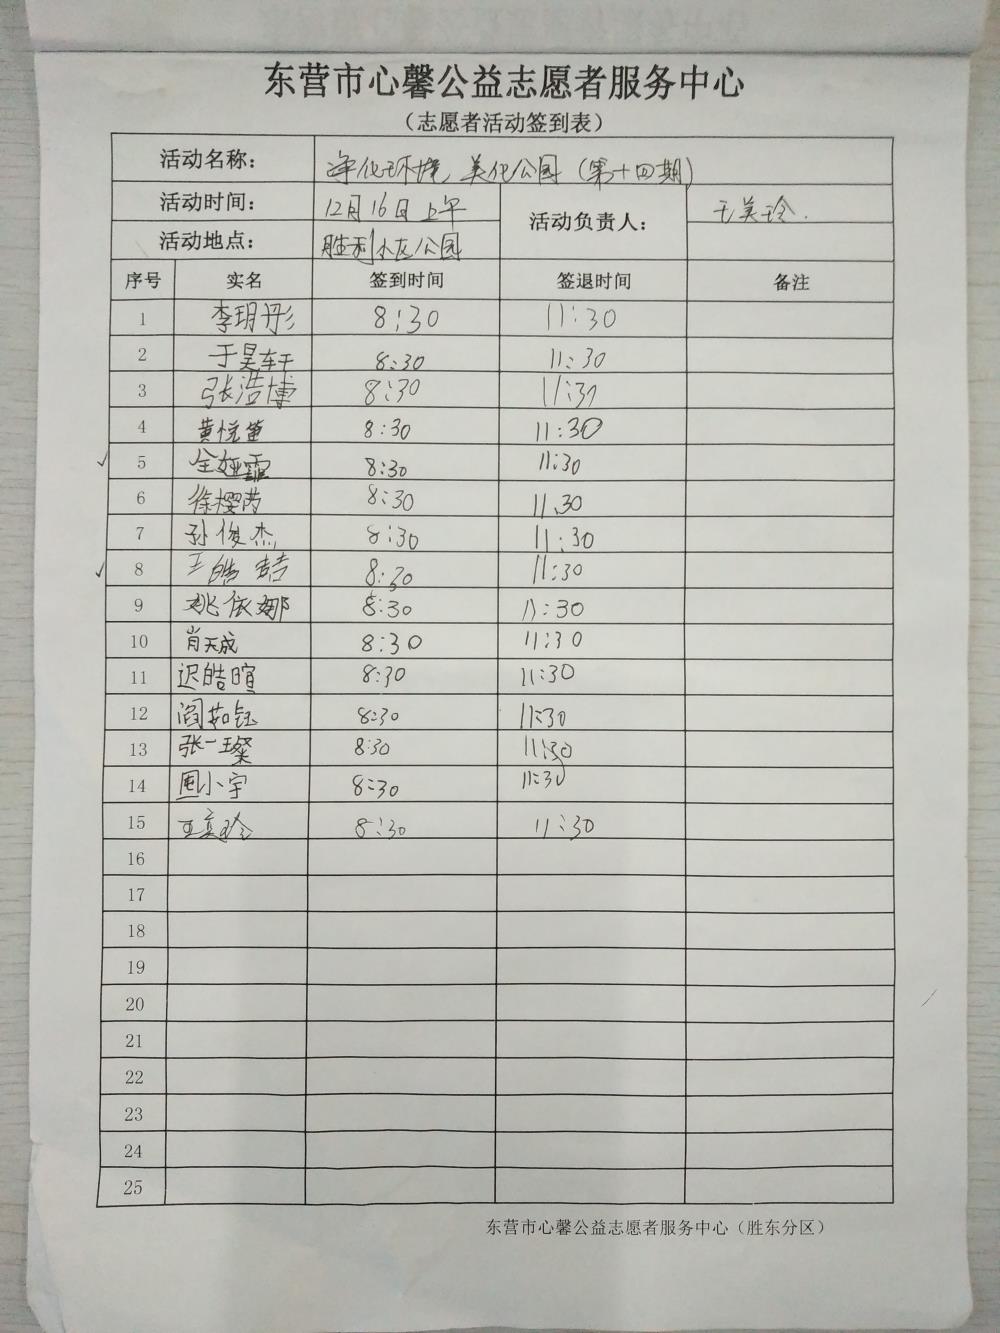 东营市心馨公益志愿者服务中心
（志愿者活动签到表）
活动名称： 净化环境 美化公园（第十四期）
活动时间： 12月16日上午 活动负责人： 王美玲.
活动地点： 胜利小区公园
序号 实名 签到时间 签退时间 备注
1 李玥彤 8:30 11:30
2 于昊轩 8:30 11:30
3 张浩博 8:30 11:30
4 黄悦 8:30 11:30
✓ 5 全娅霏 8:30 11:30
6 徐樱芮 8:30 11.30
7 孙俊杰 8:30 11:30
✓ 8 王皓喆 8:30 11:30
9 姚依娜 8:30 11:30
10 肖天成 8:30 11:30
11 迟皓暄 8:30 11:30
12 阎茹钰 8:30 11:30
13 张一璨 8:30 11:30
14 小宇 8:30 11:30
15 王美玲 8:30 11:30
16
17
18
19
20
21
22
23
24
25
东营市心馨公益志愿者服务中心（胜东分区）